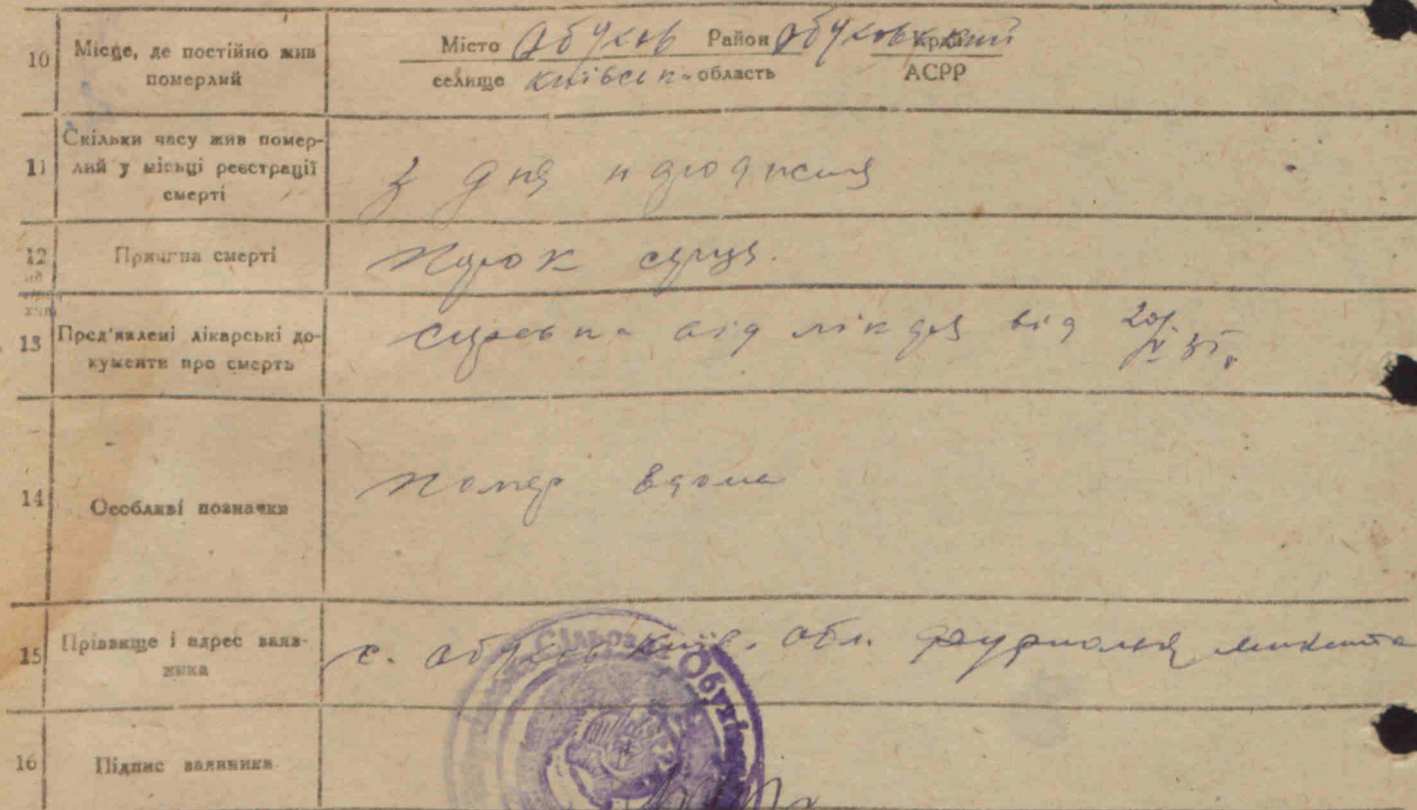 10 Місце, де постійно жив
померлий
Місто Обухов Район Обуховський Край
селище Київськ. область АСРР
11 Скільки часу жив помер-
лий у місці реєстрації
смерті
з дня народження
12 Причина смерті
Порок серця.
13 Пред'явлені лікарські до-
кументи про смерть
Справка від лікаря від 20/IV
14 Особливі позначки
Помер вдома
15 Прізвище і адрес заяв-
ника
с. Обухов Київ. обл. Микита
16 Підпис заявника